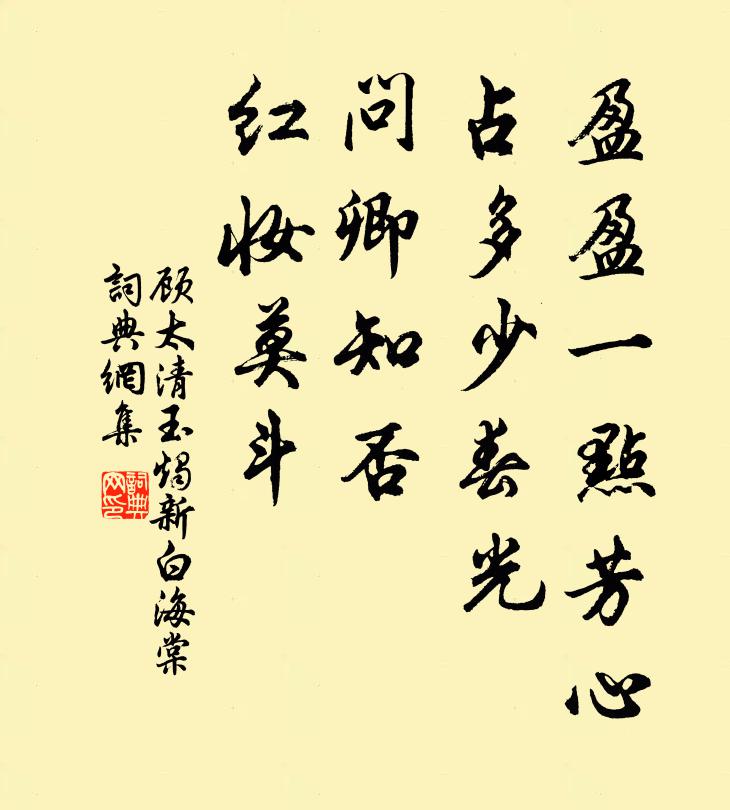 盈盈一點芳心
占多少春光
问卿知否
红妆莫斗
顾太清玉烛新白海棠
詞典網集
詞典网印